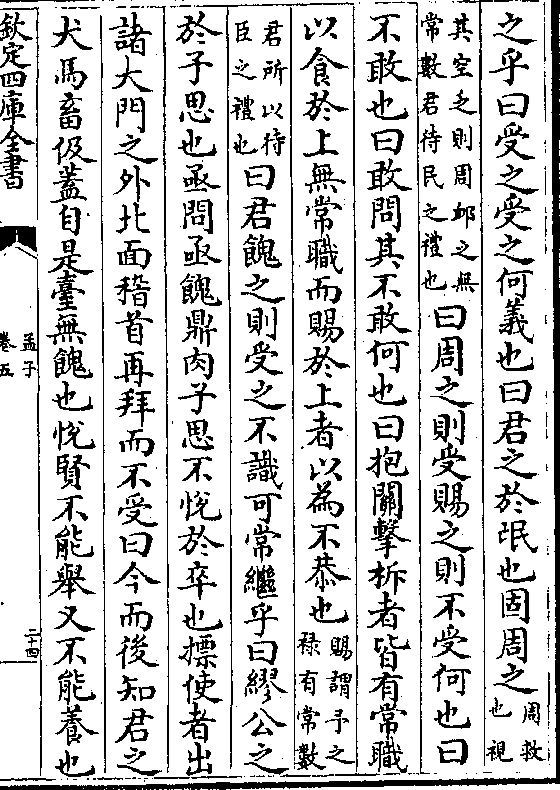 之乎曰受之受之何義也曰君之於氓也固周之周救也視
其空乏則周卹之無常數君待民之禮也曰周之則受賜之則不受何也曰
不敢也曰敢問其不敢何也曰抱關擊柝者皆有常職
以食於上無常職而賜於上者以為不恭也賜謂予之祿有常數
君所以待臣之禮也曰君餽之則受之不識可常繼乎曰繆公之
於子思也亟問亟餽鼎肉子思不悅於卒也摽使者出
諸大門之外北面稽首再拜而不受曰今而後知君之
犬馬畜伋蓋自是臺無餽也悅賢不能舉又不能養也
欽定四庫全書
孟子
卷五
二十四